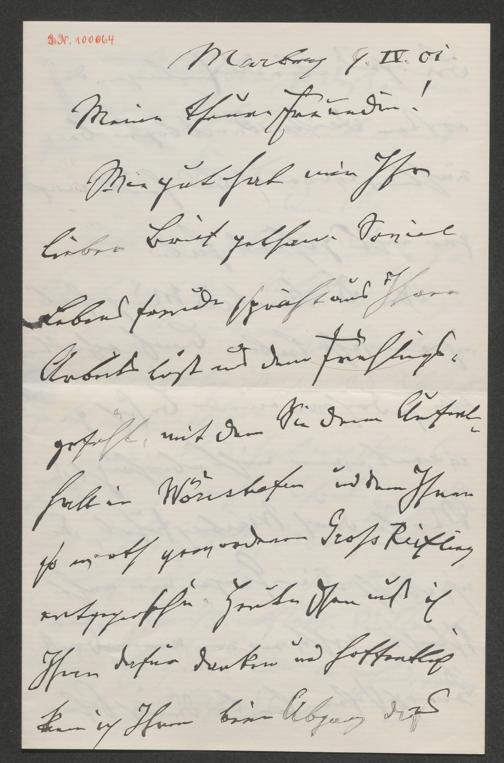 I.N. 100064
Marburg 9. IV. 01
Meine theure Freundin!
Wie gut hat mir Ihr
lieber Brief gethan. Soviel
Lebensfreude spricht aus Ihrer
Arbeitslust und dem Frühlings-
gefühl, mit dem Sie dem Aufent-
halt in Wörishofen und dem Ihnen
so werth gewordenen Groß Reifling
entgegensehen. Heute schon muß ich
Ihnen dafür danken und hoffentlich
kann ich Ihnen beim Abgang